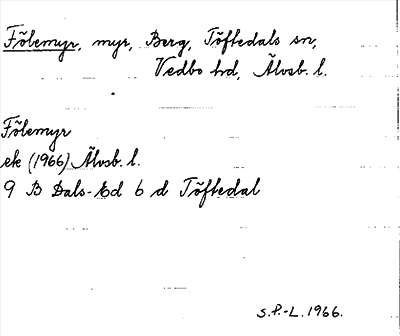 Fölemyr, myr, Berg, Töftedals sn,
Vedbo hd, Älvsb. l.
Fölemyr
ek (1966) Älvsb. l.
9 B Dals-Ed 6 d Töftedal
S.P.-L. 1966.